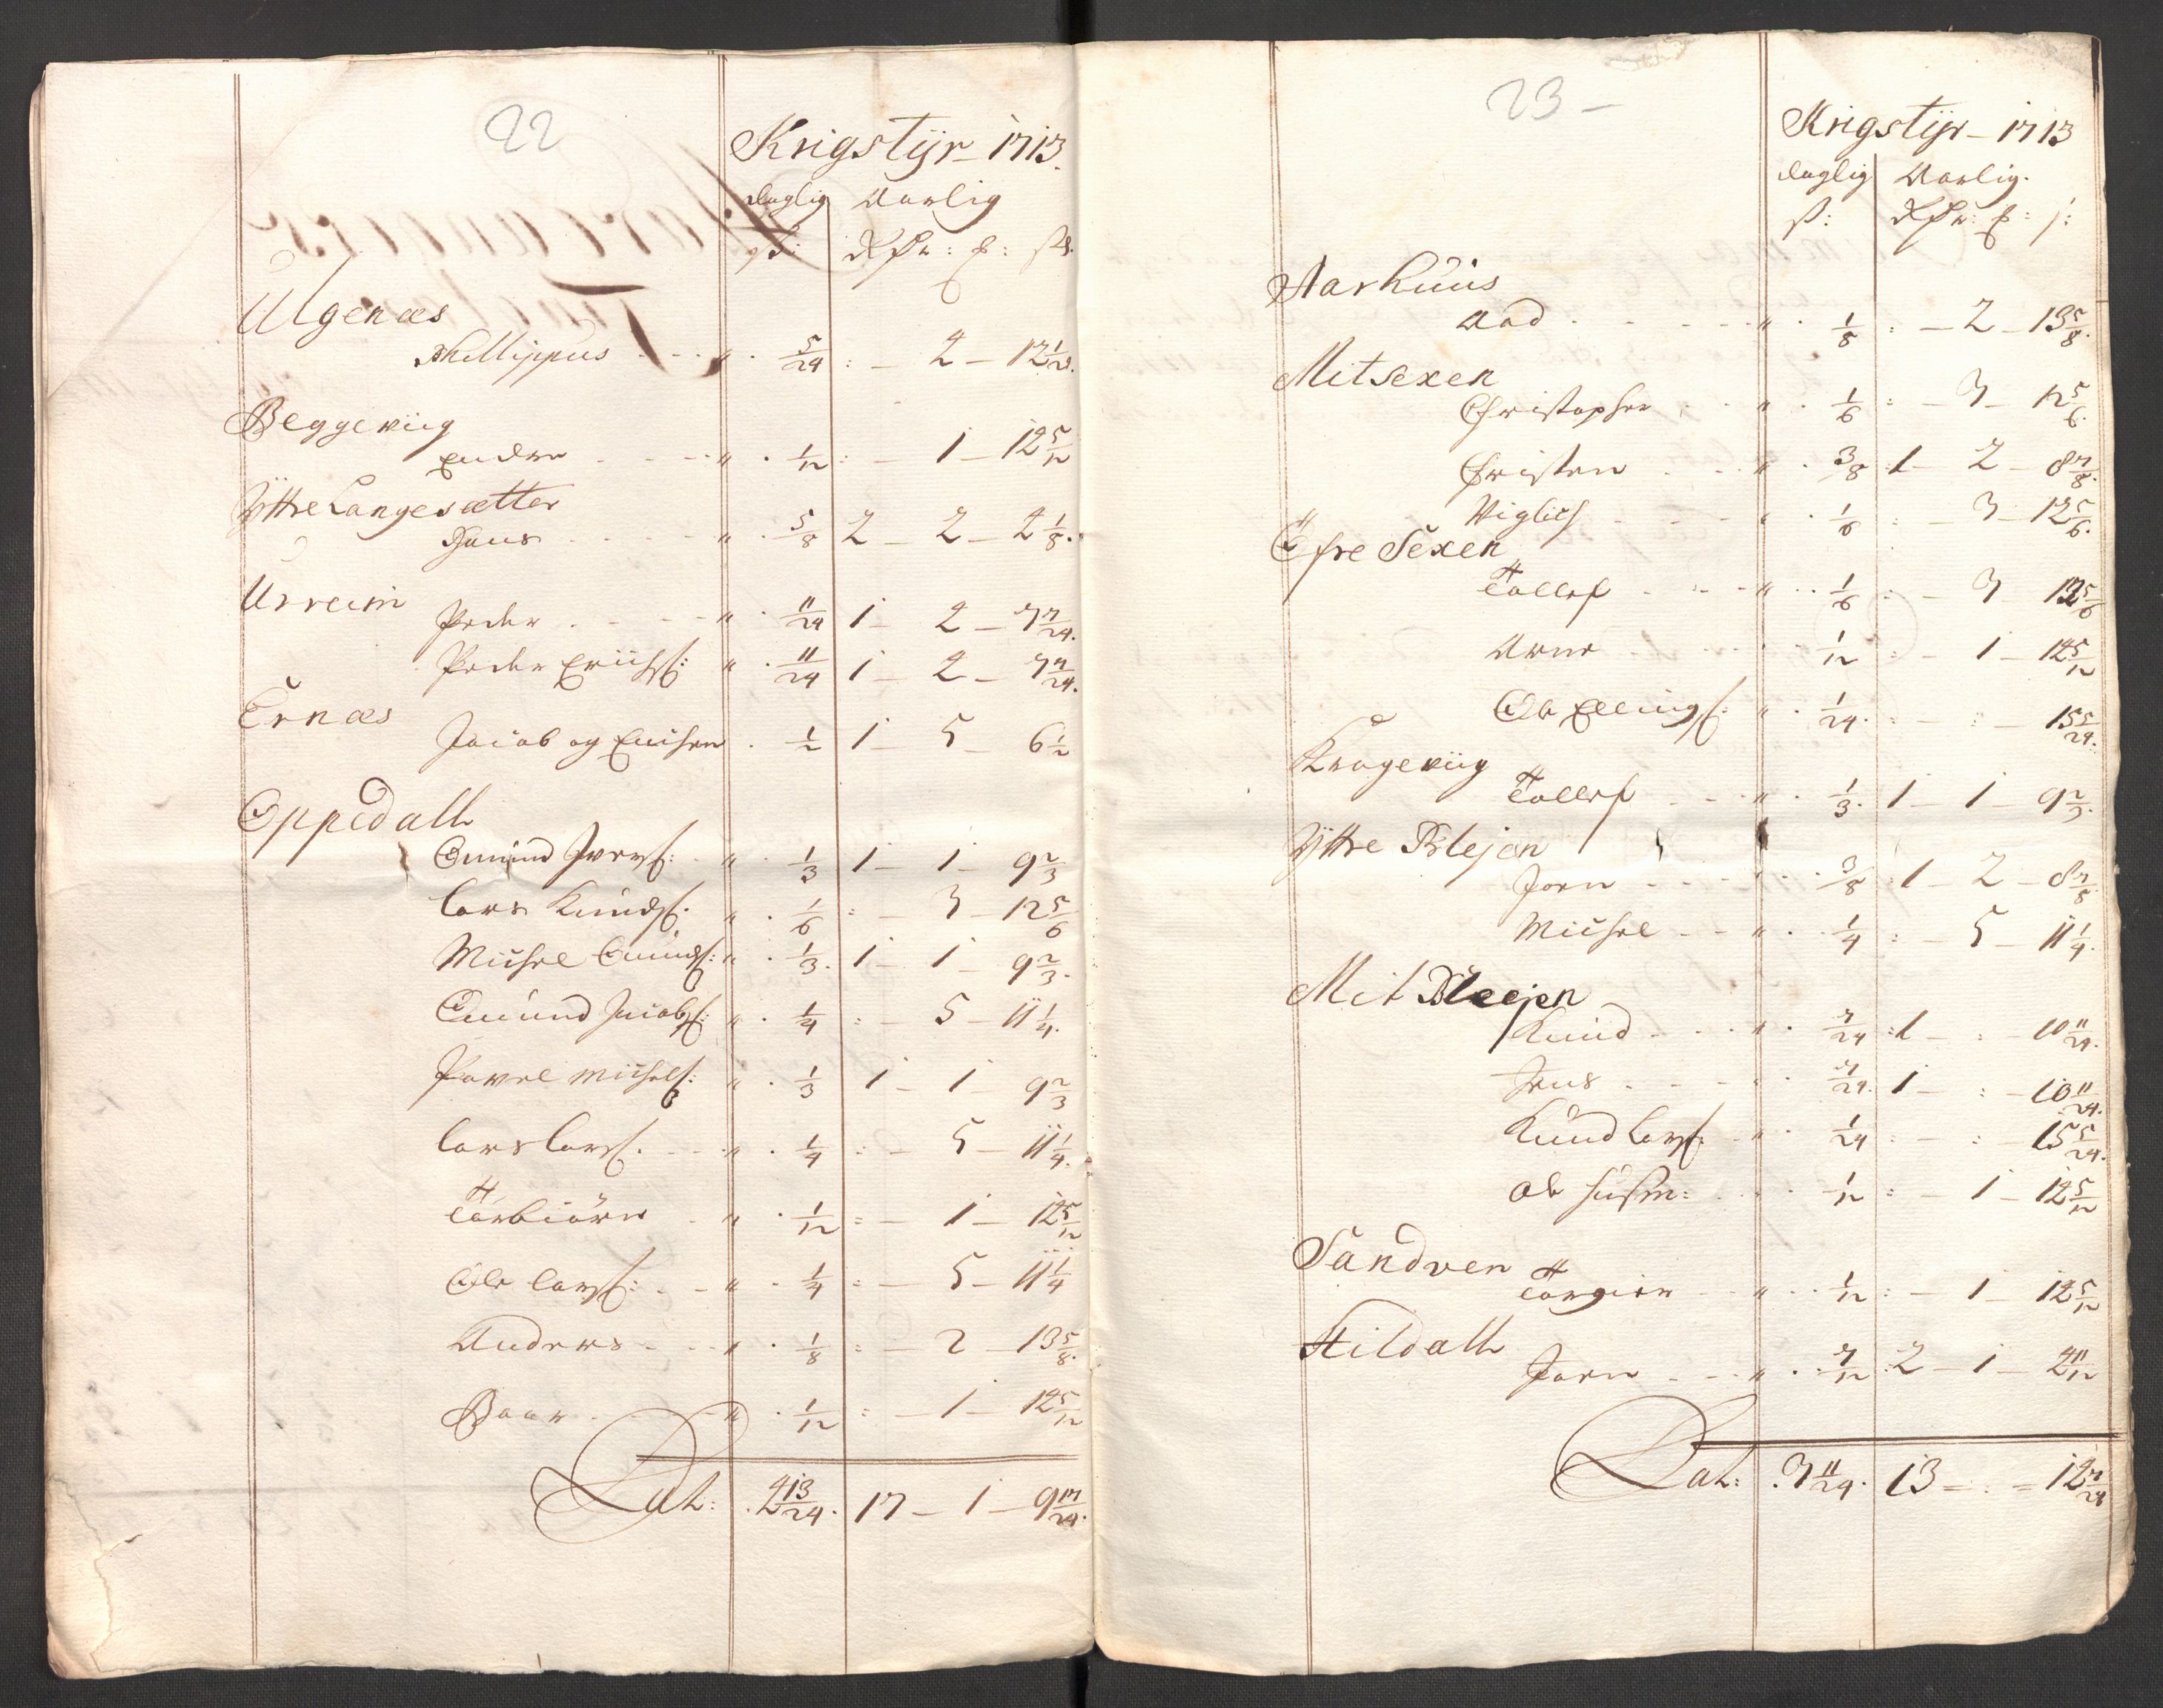 22
Krigstÿr 1713.
daglig Aarlig
ß: Rdr: £: ß:
Ulgenæs
Phillippus . . . " . 5/24 : – 2 – 12 1/24.
Beggeviig
Endre . . . " . 1/12 : – 1 – 12 5/12
Ÿttre Langesætter
Hans . . . " . 5/8 2 – 2 – 2 1/8.
Urreim
Peder . . . " . 11/24 1 – 2 – 7 7/24.
Peder Erichs: " . 11/24 1 – 2 – 7 7/24.
Ernæs
Jacob og Enchen . 1/2 1 – 5 – 6 1/2
Oppedall
Omund Ivers: . " . 1/3 1 – 1 – 9 2/3
Lars Knuds: " . 1/6 : – 3 – 12 5/6
Michel Omunds: " . 1/3. 1 – 1 – 9 2/3.
Omund Jacobs: " . 1/4 : – 5 – 11 1/4.
Povel Michels: " . 1/3 1 – 1 9 2/3
Lars Lars: . . " . 1/4 : – 5 – 11 1/4.
Torbiörn . " . 1/12 : – 1 – 12 5/12
Ole Lars: . . " . 1/4 : – 5 – 11 1/4
Anders . . " . 1/8 : – 2 – 13 5/8.
Baar . . . " . 1/12 : – 1 – 12 5/12
Lat: . 4 13/24. 17 – 1 – 9 17/24.
23 –
Krigstÿr – 1713
daglig Aarlig.
ß: Rdr: £: ß:
Aarhuus
Aad . . . " . 1/8 : – 2 – 13 5/8.
Mitsexen
Christopher . . " . 1/6 : – 3 – 12 5/6.
Christen . . " . 3/8 1 – 2 – 8 7/8.
Wiglich . . . " . 1/6 : – 3 – 12 5/6.
Öfre Sexen
Tollef . . . " . . 1/6 : – 3 12 5/6
Arne . . . 1/12 : – 1 – 12 5/12
Ole Ellings: " . 1/24. : – : – 15 5/24.
Krageviig
Tollef . . . " . 1/3. 1 – 1 – 9 2/3.
Ÿttre Blejen
Joen . . . 3/8 1 – 2 – 8 7/8.
Michel . . " . . 1/4 : – 5 – 11 1/4.
Mit Bleejen
Knud . . . " . 7/24 : 1 – : – 10 11/24.
Jens . . . " . 7/24. 1 – : – 10 11/24.
Knud Lars: . " . 1/24 : – : – 15 5/24.
Ole Husm: . . . 1/12 : – 1 – 12 5/12
Sandven
Torgier . . " . . 1/12 : – 1 – 12 5/12
Hildall
Joen . . . " . . 7/12 2 – 1 – 2 11/12
Lat: . 3 11/24. 13 – : – 12 7/24